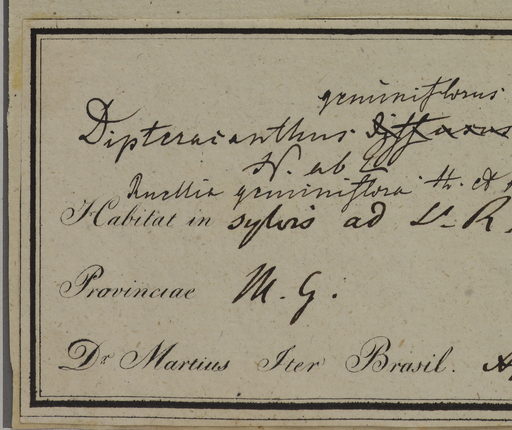 geminiflorus
Dipteracanthus diffusus
N. ab E
Ruellia geminiflora
Habitat in sylvis ad
Provinciae M. G.
Dr Martius Iter Brasil.